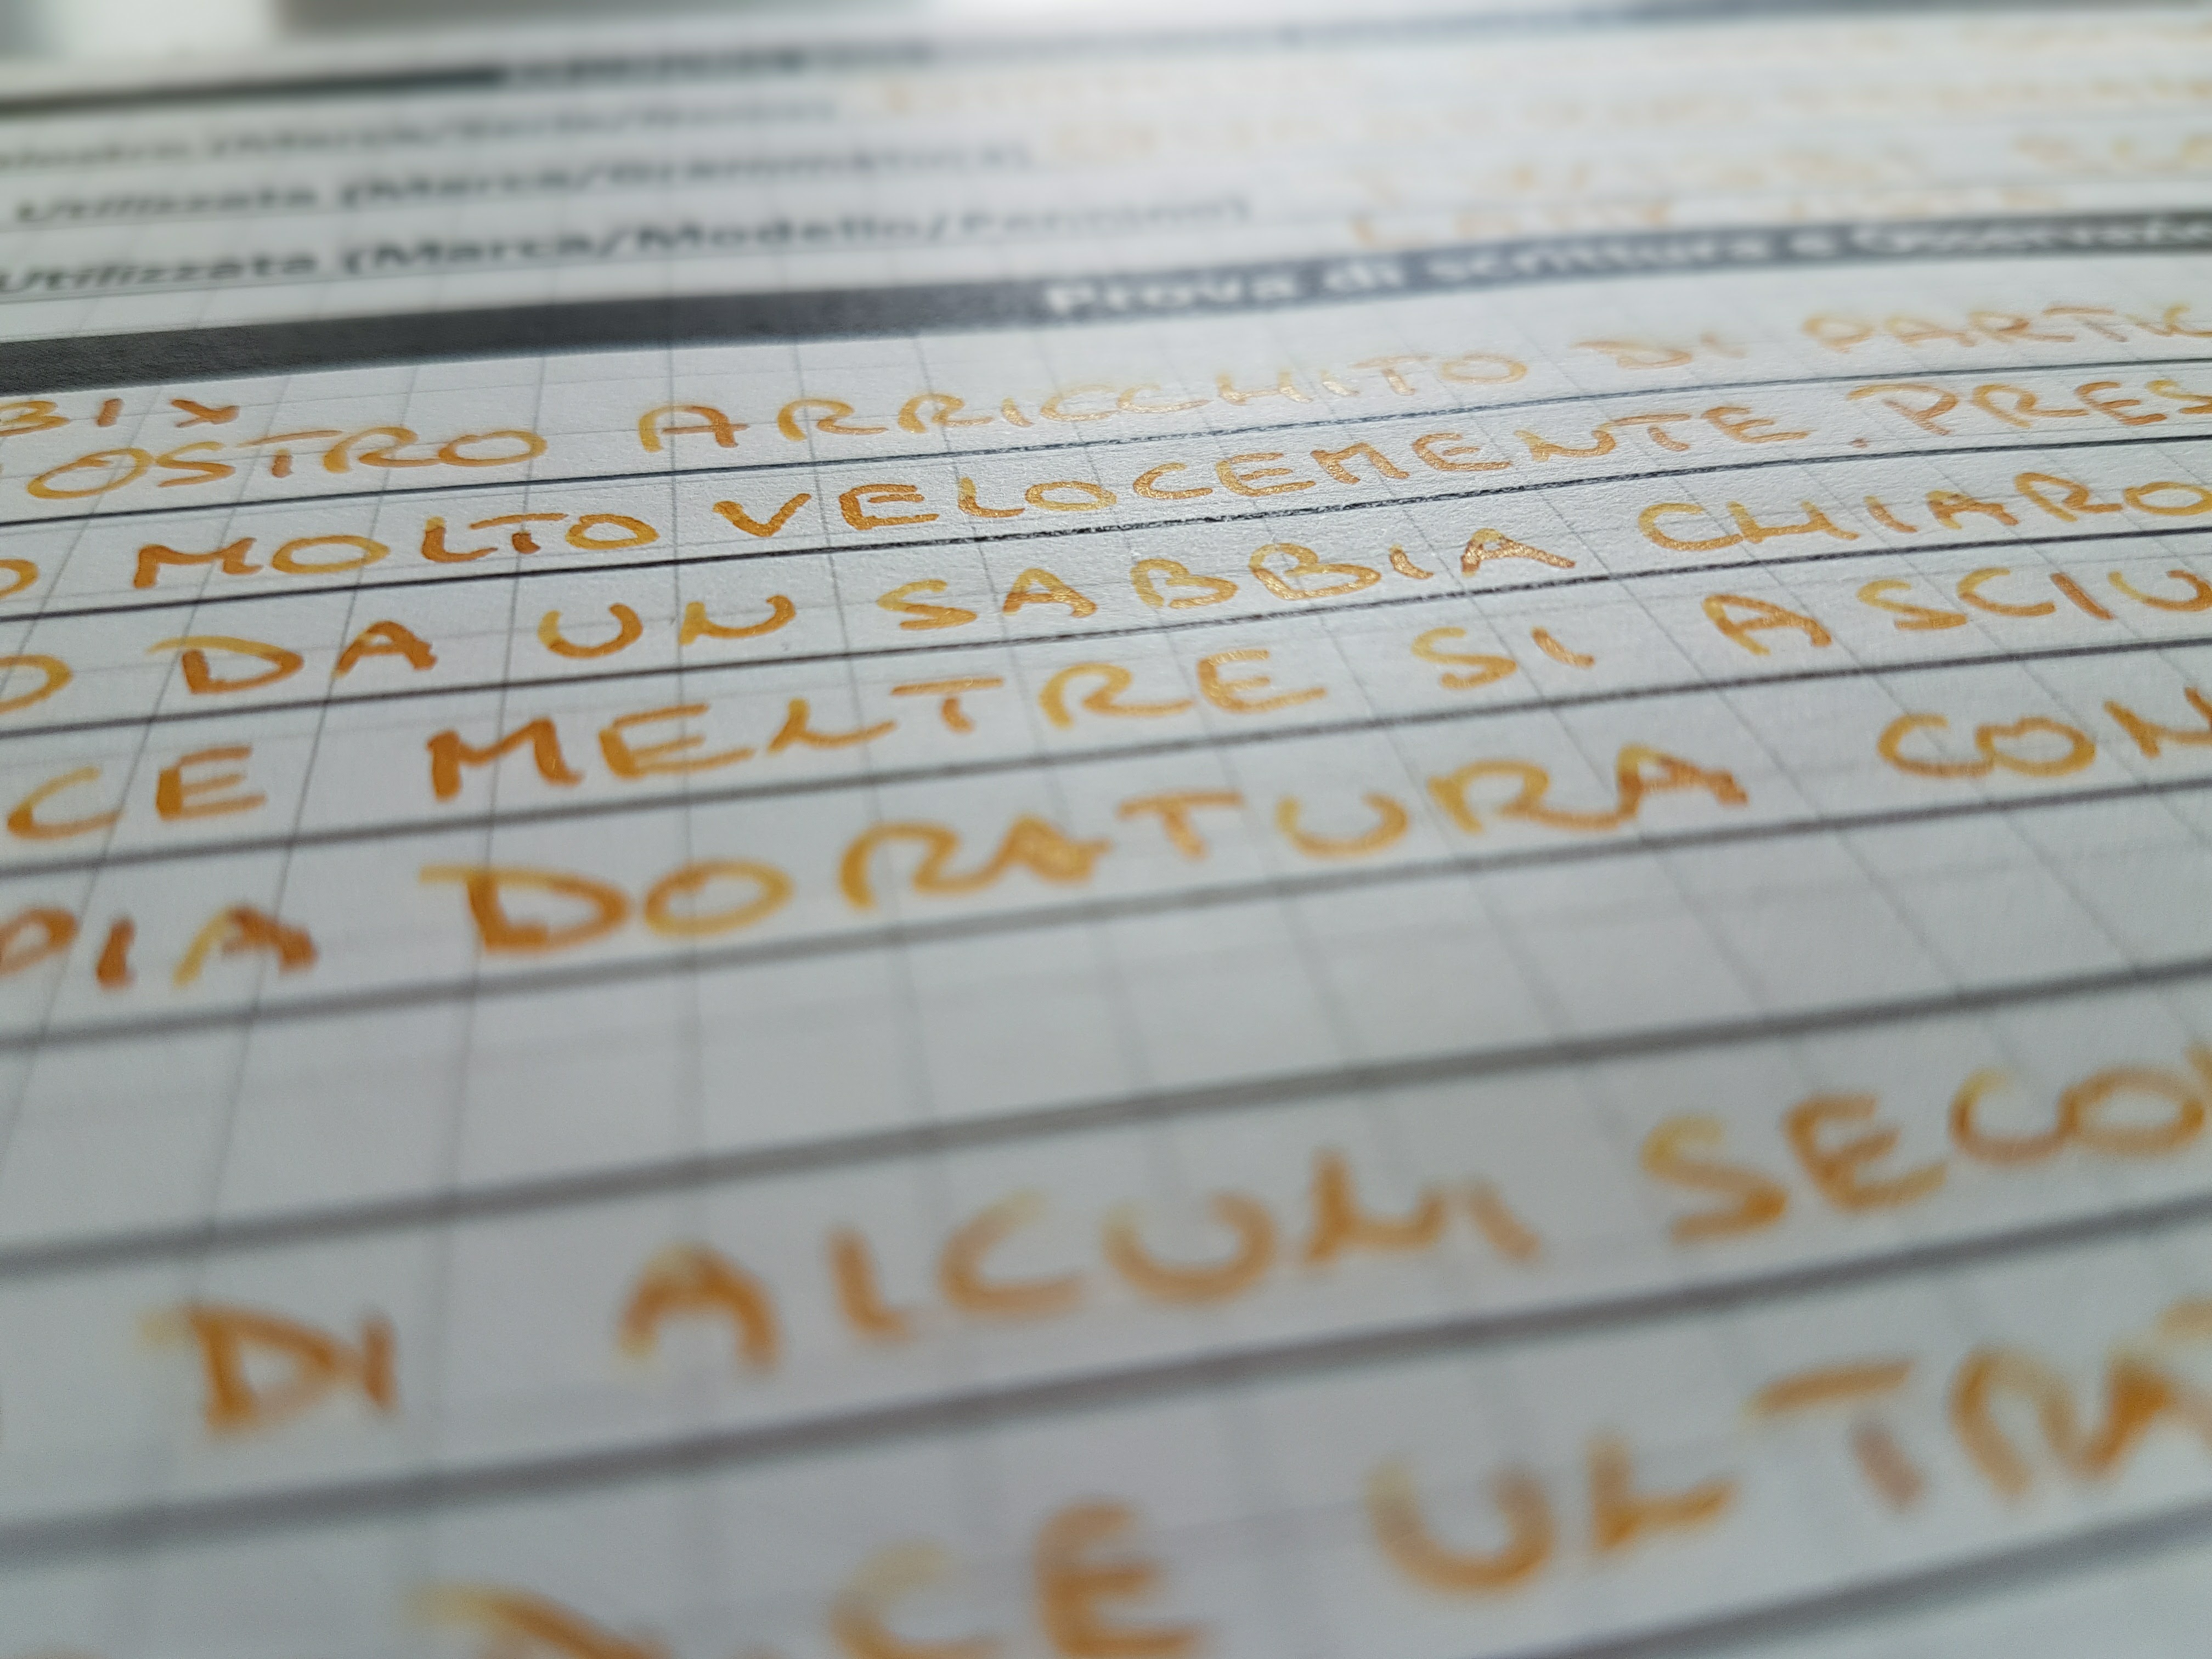 Utilizzata (Marca/Grammatura)
Utilizzata (Marca/Modello/Pennino)
Prova di scrittura e Osservazio
OSTRO ARRICCHITO DI PARTIC
O MOLTO VELOCEMENTE. PRES
O DA UN SABBIA CHIARO
CE MENTRE SI ASCIU
PIA DORATURA CON
DI ALCUNI SECON
CE ULTRA